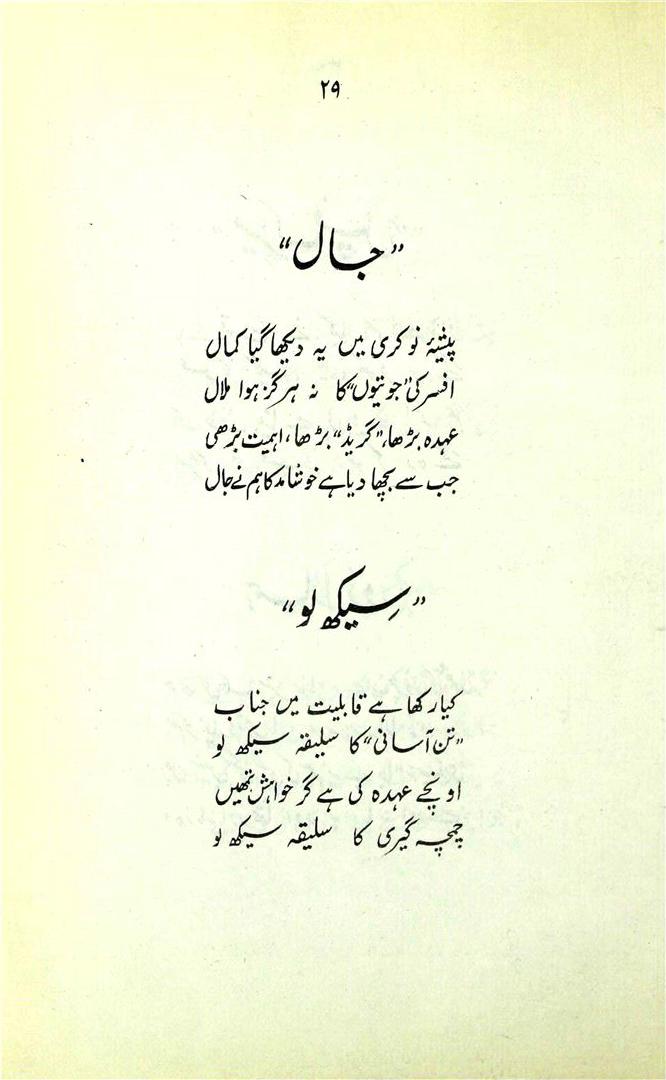 ۲۹
”جال“
پیشۂ نوکری میں یہ دیکھا گیا کمال
افسر کی ”جوتیوں“ کا نہ ہرگز ہوا ملال
عہدہ بڑھا، ”گریڈ“ بڑھا، اہمیت بڑھی
جب سے بچھا دیا ہے خوشامد کا ہم نے جال
”سِیکھ لو“
کیا رکھا ہے قابلیت میں جناب
”تن آسانی“ کا سلیقہ سیکھ لو
اونچے عہدہ کی ہے گر خواہش تمھیں
چمچہ گیری کا سلیقہ سیکھ لو